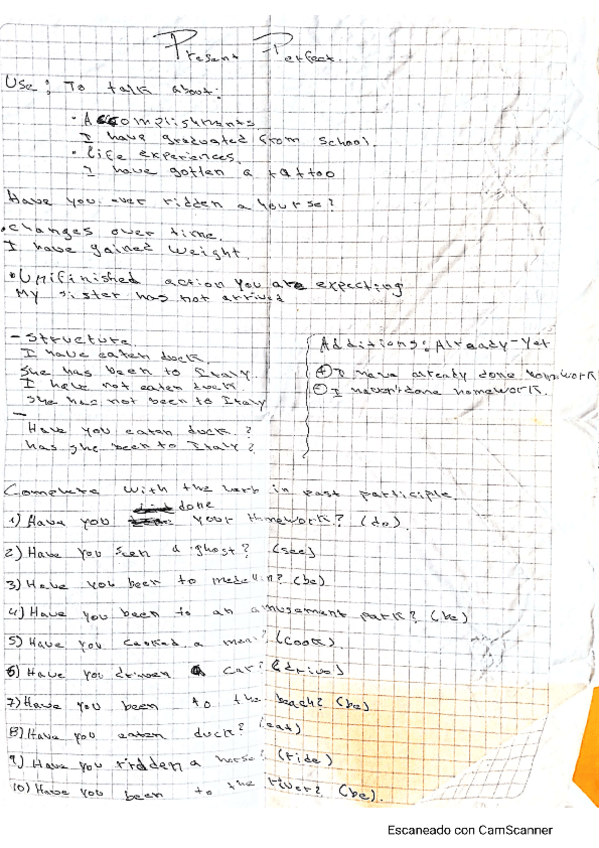 Present Perfect.
Use: To talk about:
• Accomplishments
I have graduated from school.
• Life experiences.
I have gotten a tattoo
Have you ever ridden a hourse?
• Changes over time.
I have gained weight.
• Unifinished action you are expecting
My sister has not arrived
- Structure
I have eaten duck.
She has been to Italy.
I have not eaten duck
She has not been to Italy
-
Have you eaten duck?
has she been to Italy?
Additions: Already-Yet
+ I have already done homework
- I haven't done homework.
Complete with the verb in past participle.
done
1) Have you your homework? (do).
2) Have you seen a ghost? (see)
3) Have you been to medellin? (be)
4) Have you been to an amusement park? (be)
5) Have you cooked a meal? (cook).
6) Have you driven a car? (drive)
7) Have you been to the beach? (be)
8) Have you eaten duck? (eat)
9) Have you ridden a horse? (ride)
10) Have you been to the river? (be).
Escaneado con CamScanner